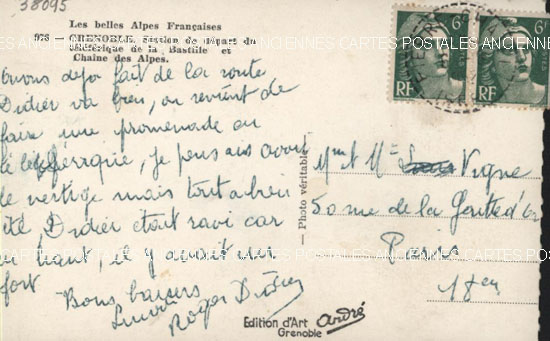 38095
Les belles Alpes Françaises
GRENOBLE. Station de départ du
Téléférique de la Bastille et
Chaîne des Alpes.
avons deja fait de la route
Didier va bien, on revient de
faire une promenade au
téléférique, je pensais avoir
le vertige mais tout a bien
été, Didier etait ravi car
en haut, il y avait un
fort
Bons baisers
Roger Didier
— Photo véritable
Mme & Mr Vigne
50 rue de la Goutte d'or
Paris
18em
6F
RF
6F
RF
Edition d'Art André
Grenoble
CARTES POSTALES ANCIENNES CARTES POSTALES ANCIENNES